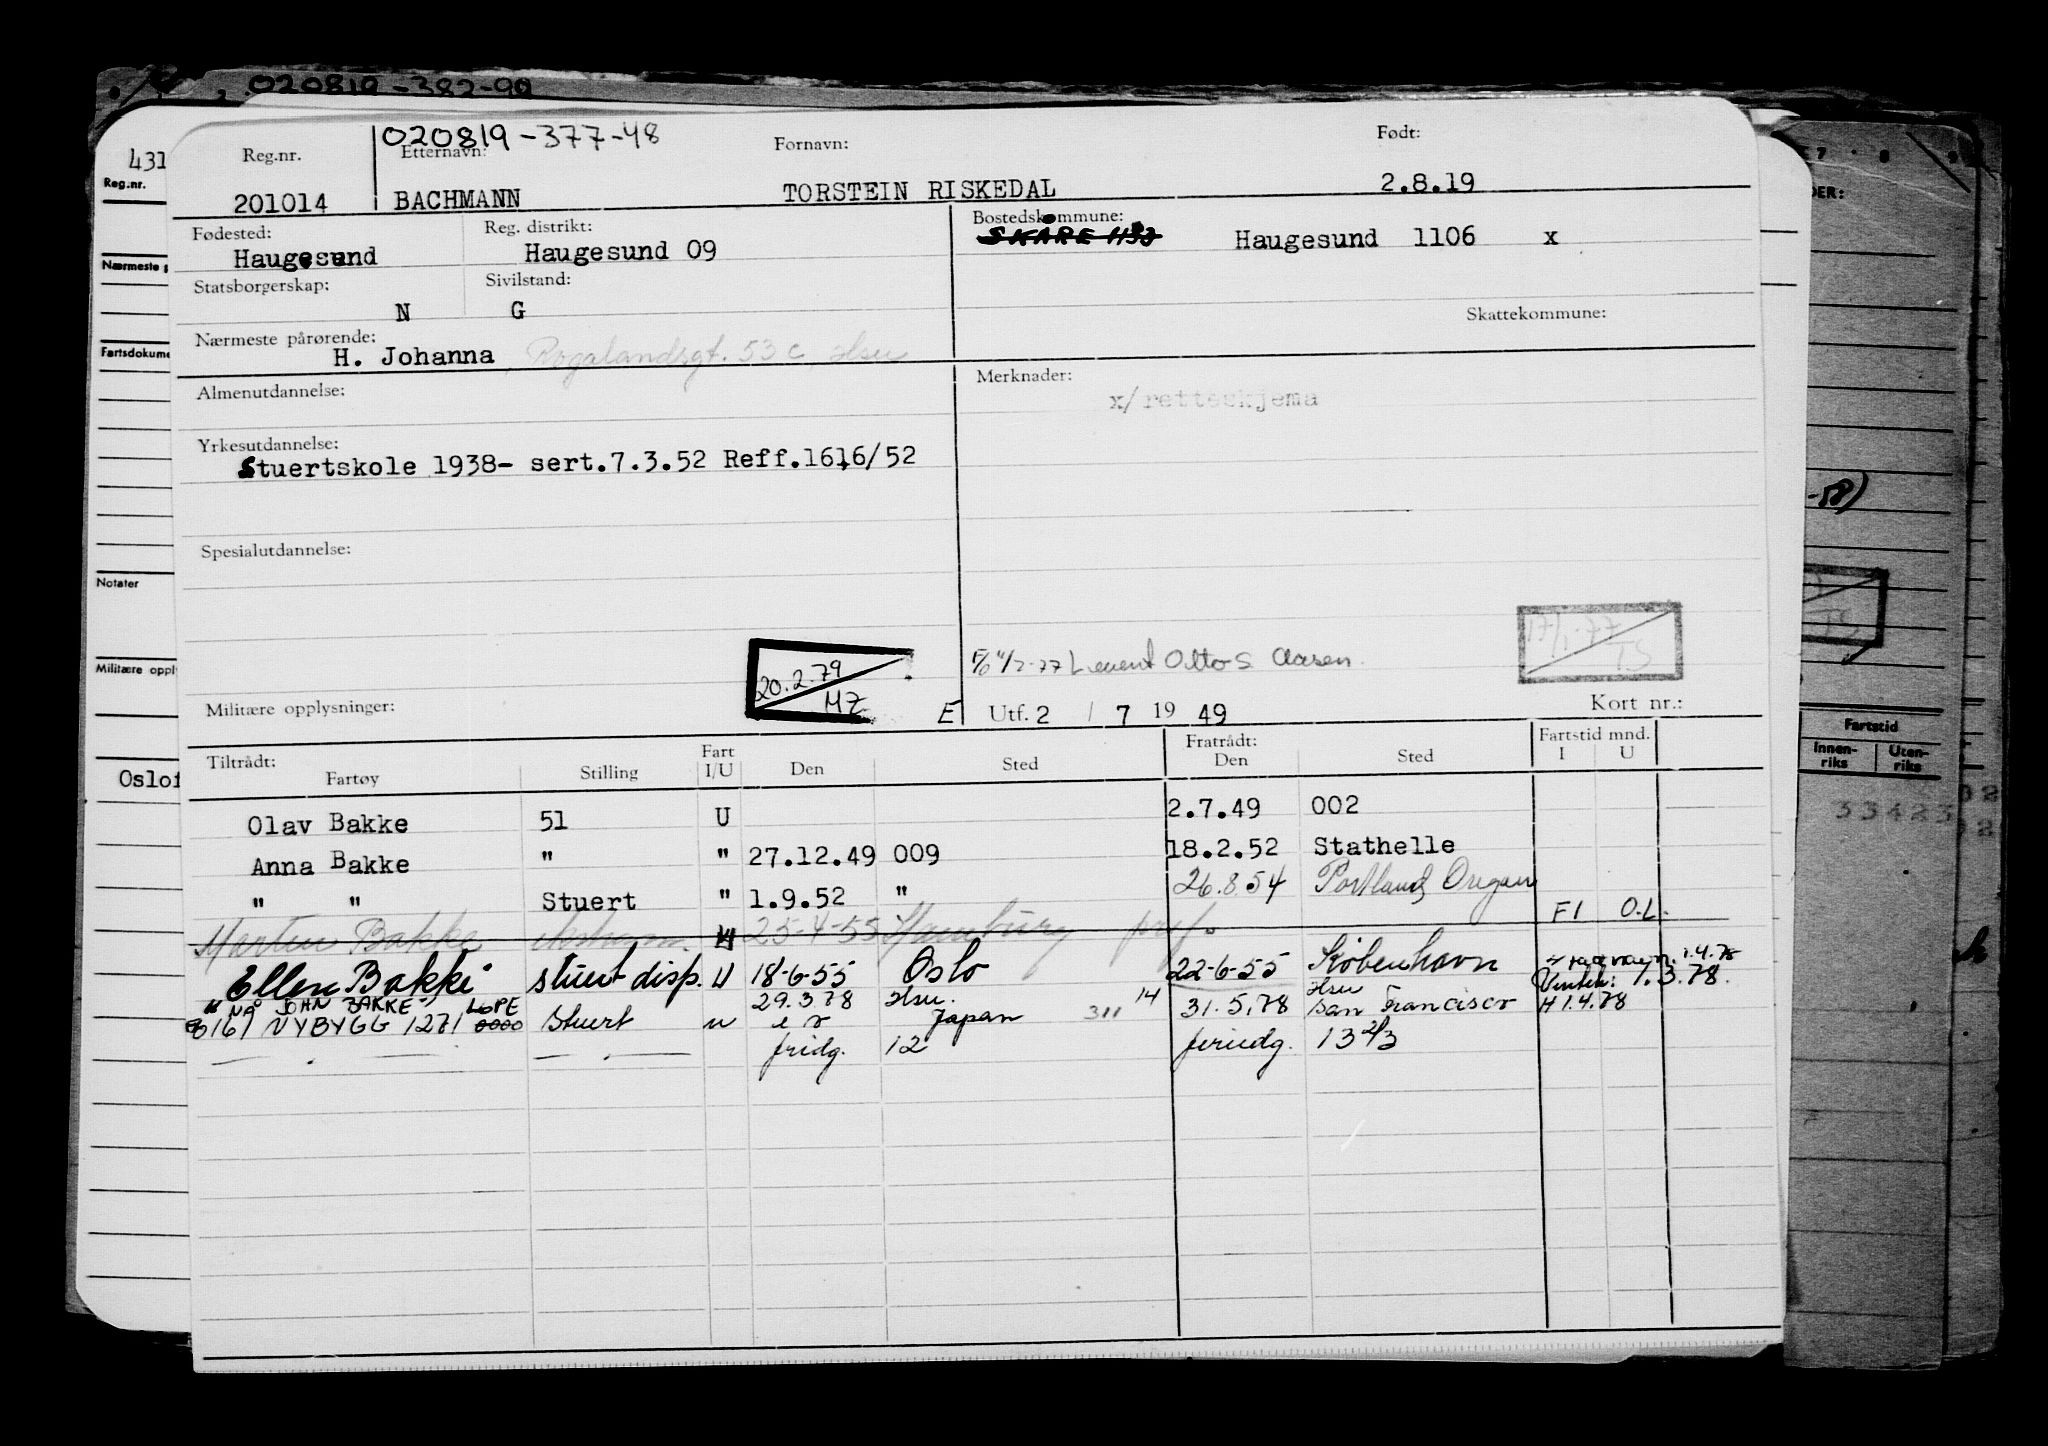 020819-382-90
020819-377-48
431 Reg.nr. Etternavn: Fornavn: Født:
Reg.nr. 201014 BACHMANN TORSTEIN RISKEDAL 2.8.19
Fødested: Reg. distrikt: Bostedskommune:
Haugesund Haugesund 09 SKARE 1133 Haugesund 1106 x
Nærmeste
Statsborgerskap: Sivilstand:
N G
Skattekommune:
Nærmeste pårørende:
H. Johanna, Rogalandsgt. 53 c, Hsu
Fartsdokume
Almenutdannelse: Merknader:
x/ retteskjema
Yrkesutdannelse:
Stuertskole 1938- sert.7.3.52 Reff.1616/52
-58)
Spesialutdannelse:
Notater
17/1-77
TS
20.2.79
MZ
F/o 4/2-77 Levert Otto S. Aasen
Militære oppl
Militære opplysninger: E Utf. 2 / 7 19 49 Kort nr.:
Tiltrådt: Fart Fratrådt: Fartstid mnd.
Fartøy Stilling I/U Den Sted Den Sted I U
Fartstid
Innen- Uten-
riks riks
Oslof
Olav Bakke 51 U 2.7.49 002
33423
Anna Bakke " " 27.12.49 009 18.2.52 Stathelle
" " Stuert " 1.9.52 " 26.8.54 Portland Oregon
F1 O.L.
Marten Bakke 25-4-55 Hamburg
Ellen Bakke stuert disp. U 18-6-55 Oslo 22-6-55 København 1.4.78
" NÅ JOHN BAKKE" LOPE 29.3.78 Hsu. 14 Hsu 1.3.78.
NYBYGG 1271 0000 Stuert u Japan 311 31.5.78 San Francisco H 1.4.78
fridg. 12 feriedg. 13 2/3